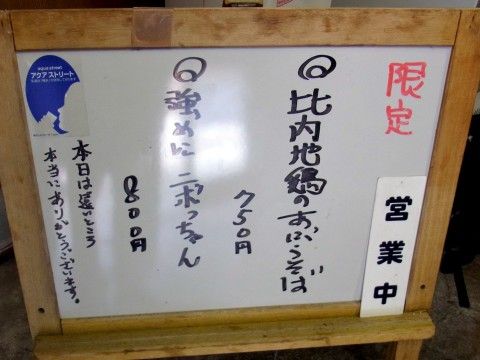 限定
営業中
◎比内地鶏のあぶらそば
750円
◎強めにニボっちゃん
800円
本日は遠いところ
本当にありがとうございます。
aqua street
アクアストリート